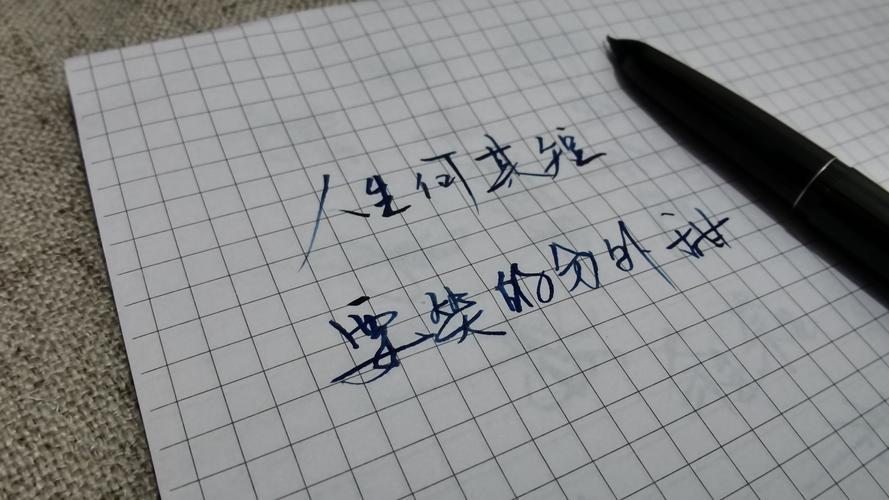 人生何其短
要笑的分外甜